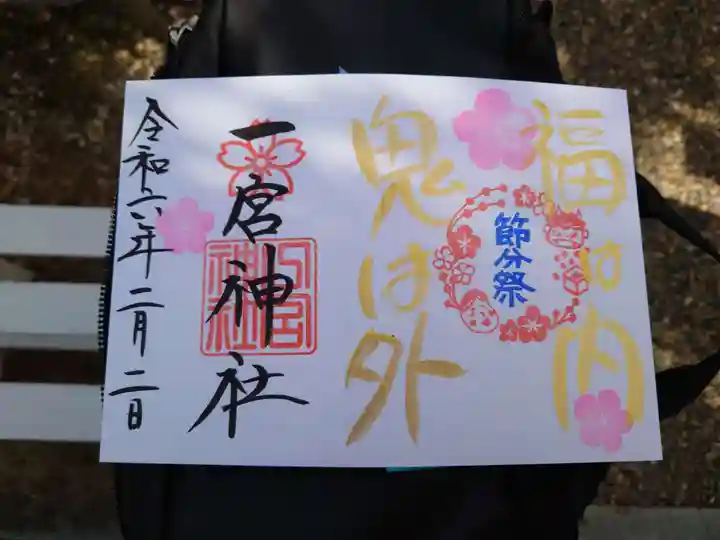 福は内
節分祭
鬼は外
一宮神社
令和六年二月二日